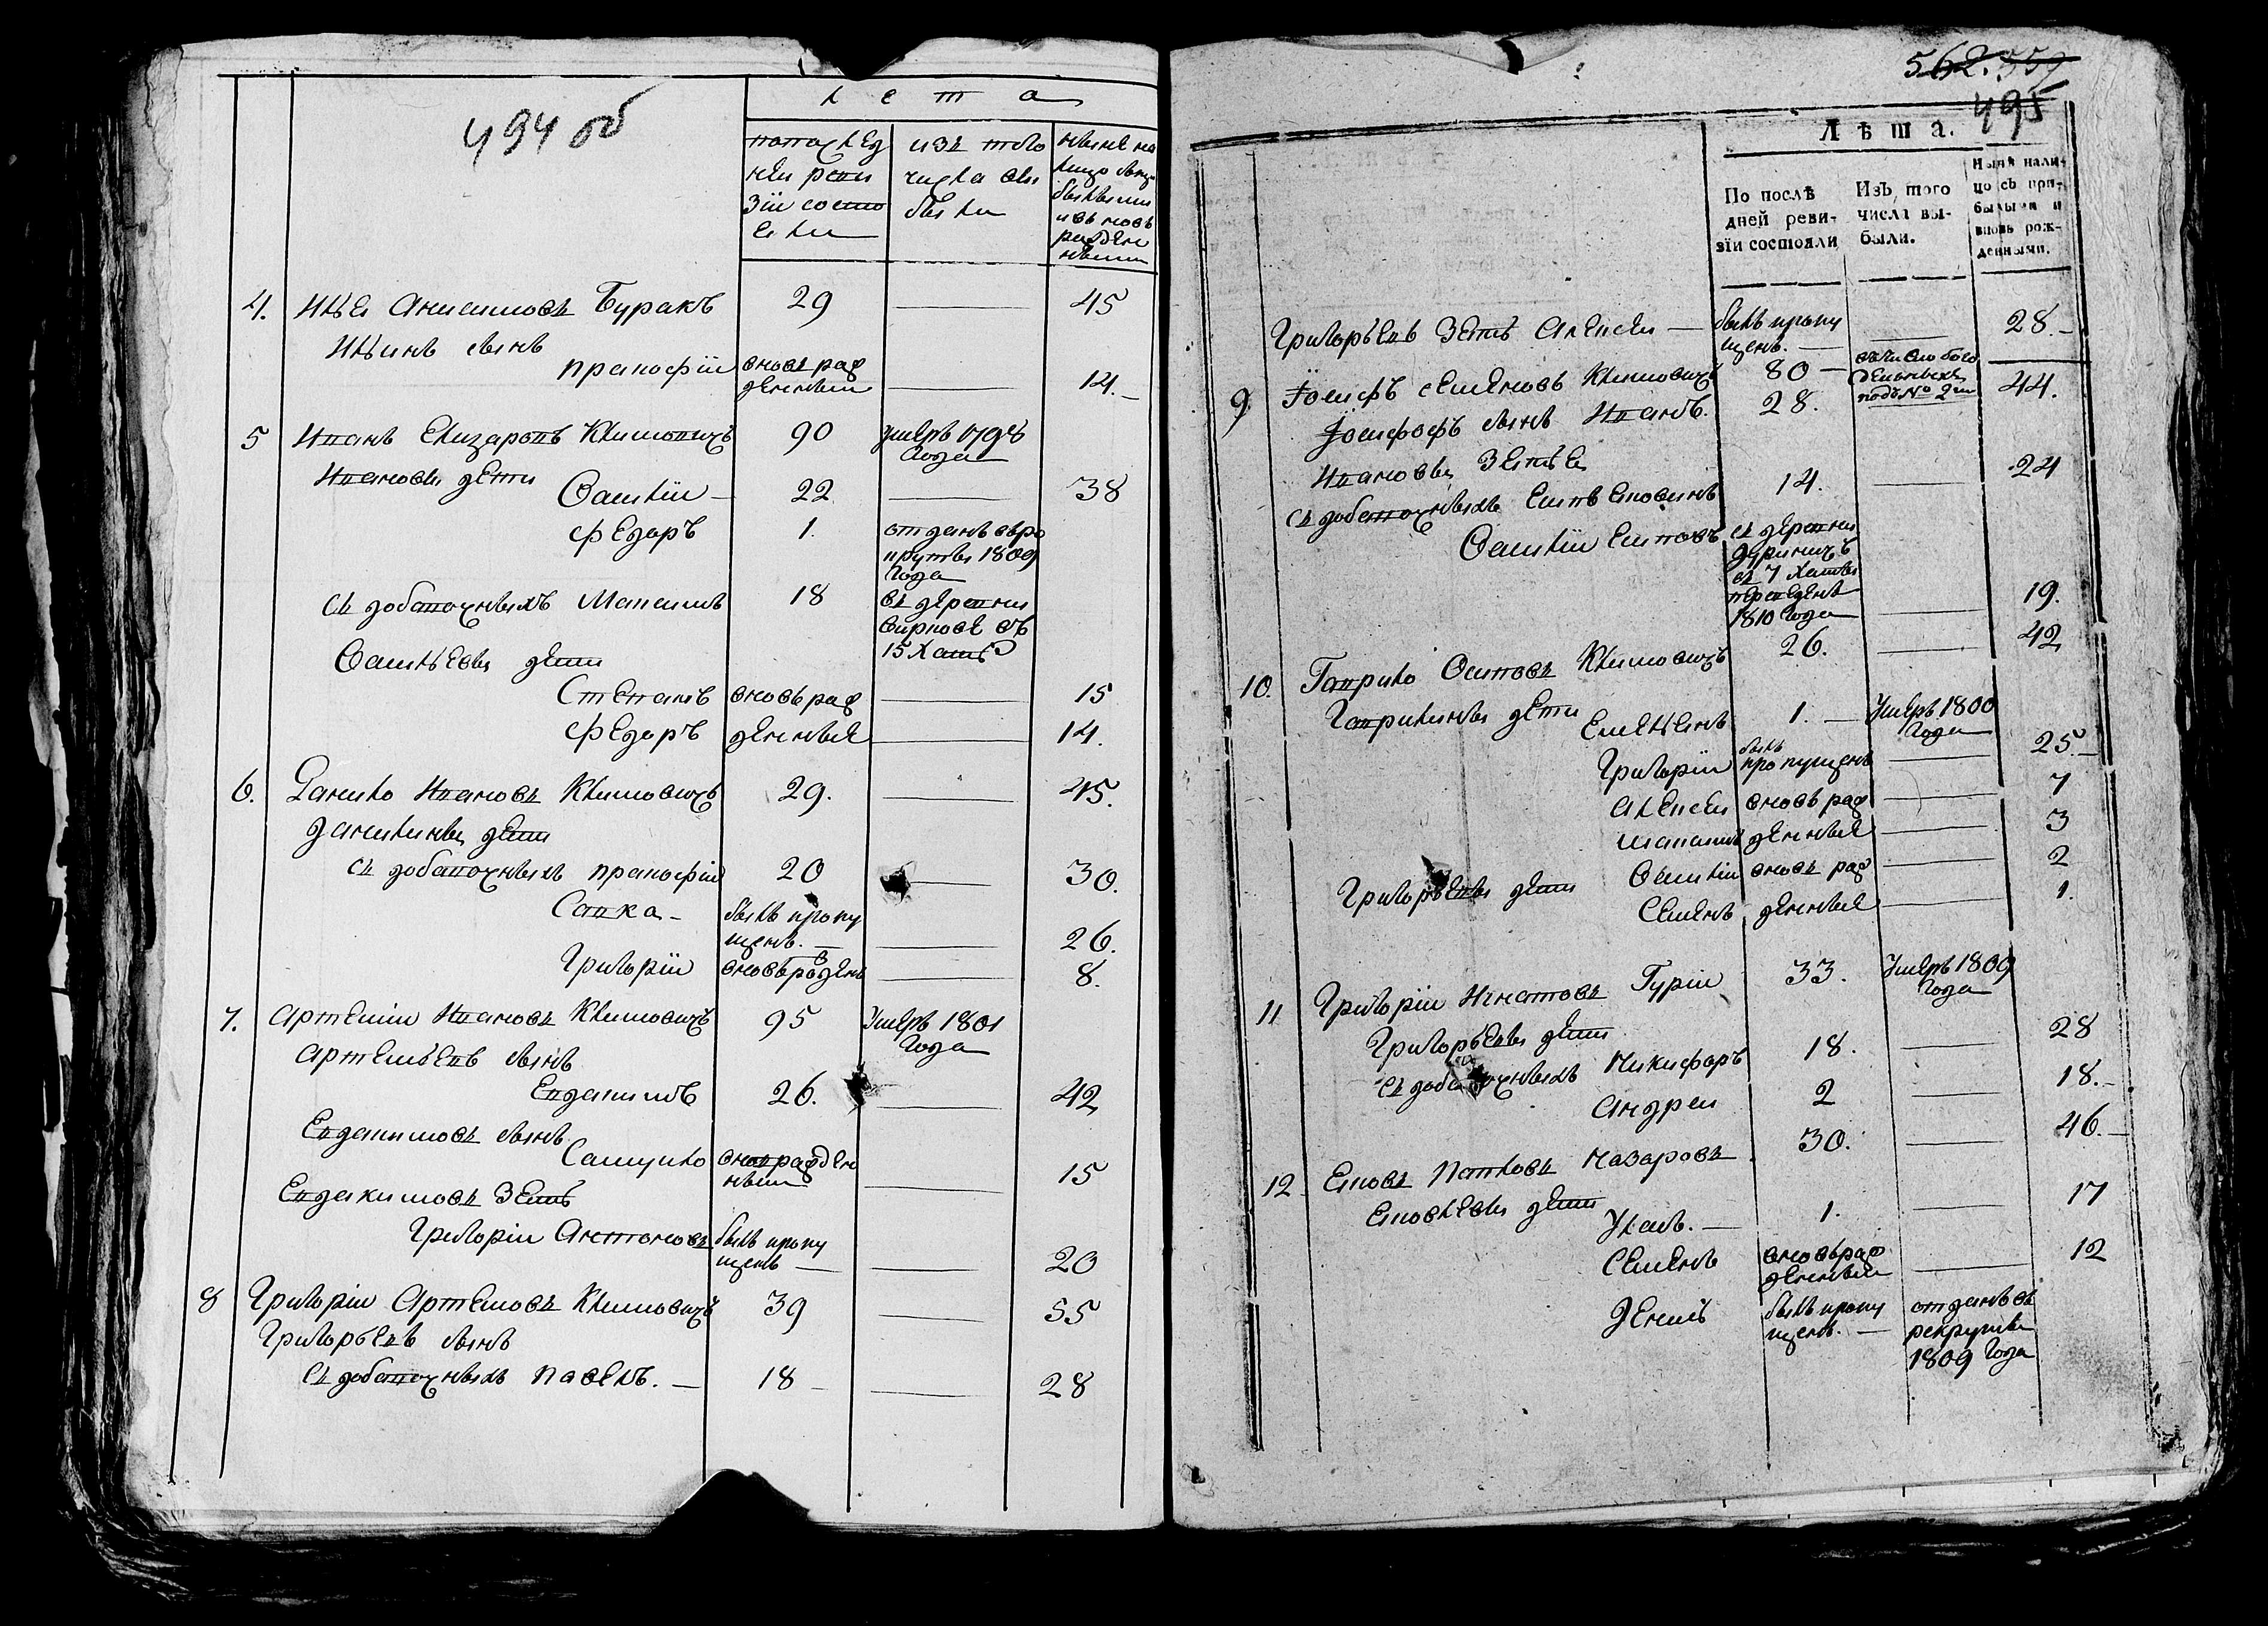 494 об
Лета
по послед
ней реви
зіи состо
яли
изъ того
числа вы
были
ныне на
лицо съ при
былыми
и въ новь
рожден
ными
4. Илья Анисимовъ Буракъ 29 — 45
Ильинъ сынъ
Прокофіи вновь рож
денныи — 14.
5 Иванъ Елизаровъ Климовичъ 90 Умеръ 1798
года
Ивановы дети
Василіи — 22 — 38
Федоръ 1. отданъ въ ре
круты 1809
года
съ добавочныхъ Максимъ 18 въ деревни
15 хать
Васильевы дети
Степанъ вновь рож — 15
Федоръ денные — 14.
6. Данило Ивановъ Климовичъ 29. — 45.
Даниловы дети
съ добавочныхъ Прокофіи 20 — 30.
Савка — былъ пропу
щенъ. — 26.
Григоріи вновь рожденъ — 8.
7. Артемiи Ивановъ Климовичъ 95 Умеръ 1801
года
Артемьевъ сынъ
Евдакимъ 26. — 42
Евдакимовъ сынъ
Самуило вновь рожден
ныи — 15
Евдакимовъ зеть
Григоріи Антоновъ былъ пропу
щенъ — 20
8 Григоріи Артемовъ Климовичъ 39 — 55
Григорьевъ сынъ
съ добавочныхъ Павелъ. — 18 — 28
562. 559
495
Лѣта.
По послѣ
дней реви-
зіи состояли
Изъ того
числа вы-
были.
Нынѣ нали-
цо съ при-
былыми и
вновь рож-
денными.
Григорьевъ зеть Алексеи — былъ пропу
щенъ. — 28.
9 Іосифъ Семеновъ Климовичъ 80 — въ число бого
дельныхъ
подъ № 2м
Іосифофъ сынъ Иванъ. 28. 44.
Ивановы зетья
съ добавочныхъ Еливей 14. — 24
Василіи съ деревни
съ 7 хаты
переведенъ
1810 года — 19.
10. Гаврило Осиповъ Климовичъ 26. — 42
Гавриловы дети
Емельянъ 1. — Умеръ 1800
года
Григоріи былъ
пропущенъ — 25.
Алексеи вновь рож — 7
Максимъ денные — 3
Григорьевы дети Василіи вновь рож — 2
Семенъ денные — 1.
11 Григоріи Игнатовъ Гуріи 33. Умеръ 1809
года
Григорьевы дети
съ добавочныхъ Никифоръ 18. — 28
Андреи 2 — 18.
12 Павловъ Назаровъ 30. — 46.
дети
Уласъ. — 1. — 17
Семенъ вновь рож
денныи — 12
Денисъ былъ пропу
щенъ. — отданъ въ
рекруты
1809 года